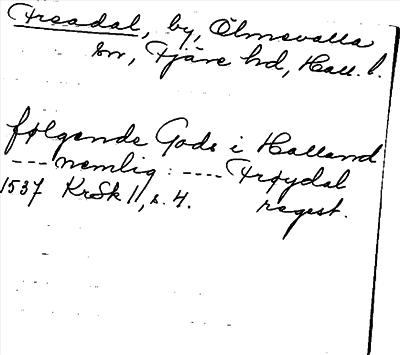 Freadal, by, Ölmevalla
sn, Fjäre hd, Hall. l.
følgende Gods i Halland
--- nemlig: ---- Frøydal
1537 KrSk 11, s. 4. regest.